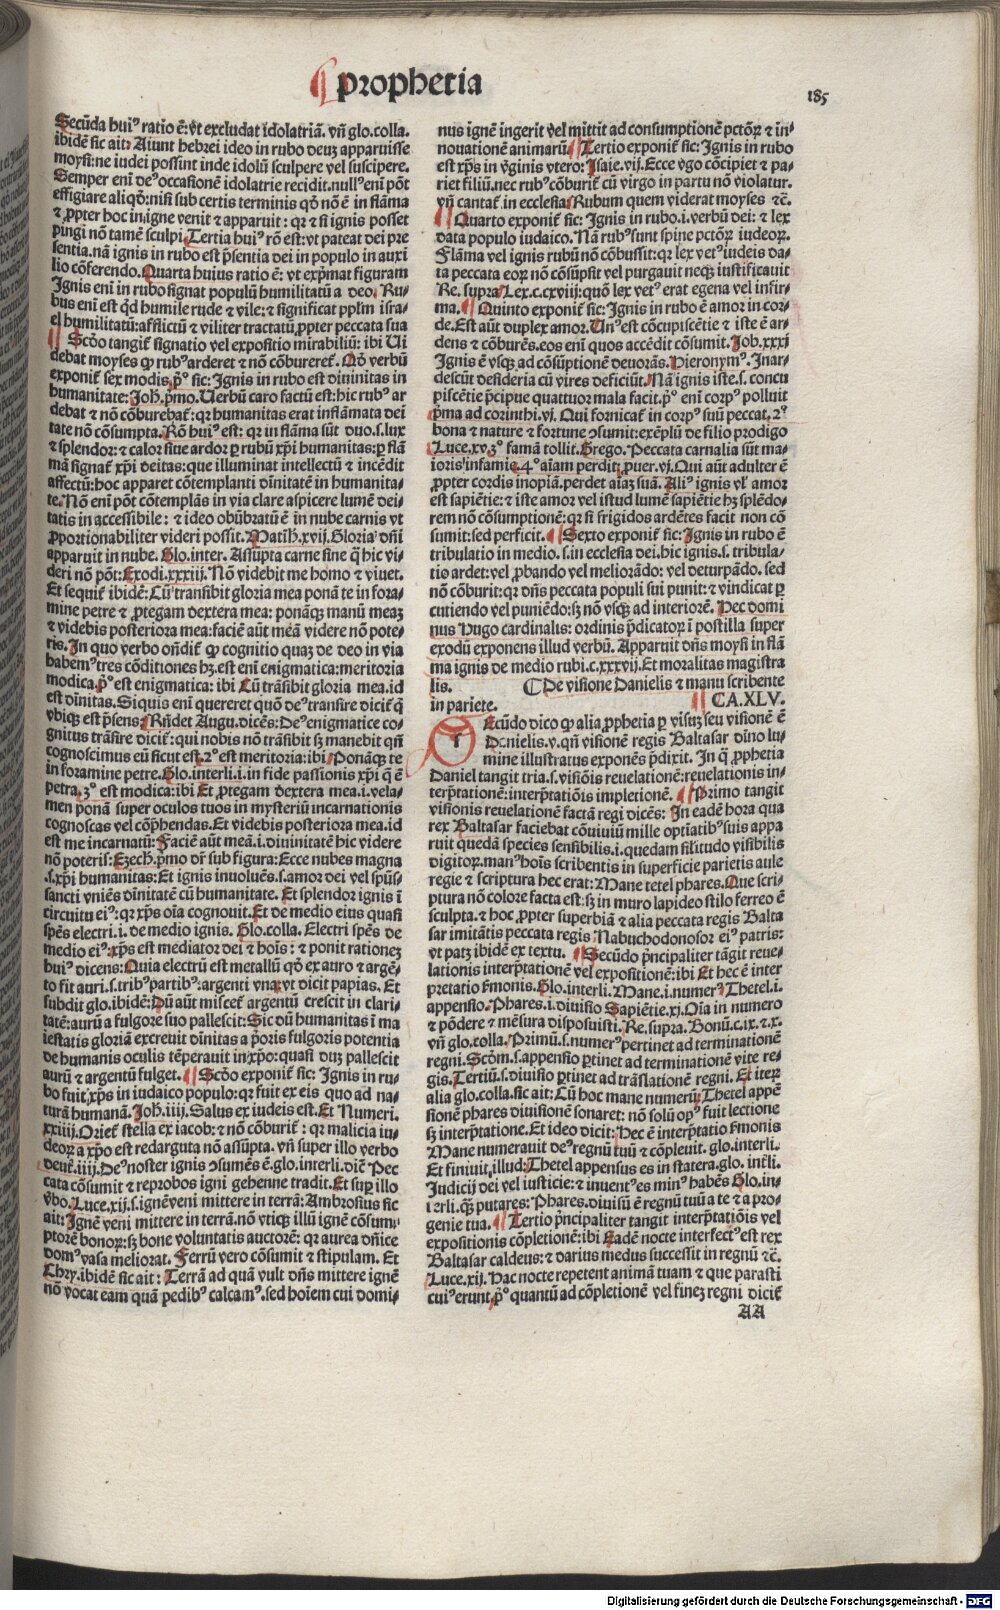 ¶ prophetia
185
Secūda huiꝰ ratio ē: vt excludat idolatriā. vn̄ glo. colla.
ibidē sic ait: Aiunt hebrei ideo in rubo deuꝫ apparuisse
moysi: ne iudei possint inde idolū sculpere vel suscipere.
Semper eni deꝰ occasionē idolatrie recidit. nullꝰ eni pōt
effigiare aliqđ: nisi sub certis terminis qđ nō ē in flāma
⁊ ꝓpter hoc in igne venit ⁊ apparuit: qꝛ ⁊ si ignis posset
pingi nō tamē sculpi. Tertia huiꝰ rō est: vt pateat dei pre
sentia. nā ignis in rubo est p̄sentia dei in populo in auxi
lio cōferendo. Quarta huius ratio ē: vt exp̄mat figuram
Ignis eni in rubo signat populū humilitatū a deo. Ru⸗
bus eni est qd humile rude ⁊ vile: ⁊ significat pplm isra⸗
el humilitatū: afflictū ⁊ viliter tractatū ꝓpter peccata sua
¶ Scđo tangit̄ signatio vel expositio mirabiliū: ibi Ui
debat moyses ꝙ rubꝰ arderet ⁊ nō cōbureret̄. Qđ verbū
exponit̄ sex modis. p̄ꝰ sic: Ignis in rubo est diuinitas in
humanitate: Joh. p̄mo. Uerbū caro factū est: hic rubꝰ ar
debat ⁊ nō cōburebat̄: qꝛ humanitas erat inflāmata dei
tate nō cōsumpta. Rō huiꝰ est: qꝛ in flāma sūt duo. s. lux
⁊ splendor: ⁊ calor siue ardor ꝑ rubū xp̄i humanitas: ꝑ flā
mā signat̄ xp̄i deitas: que illuminat intellectū ⁊ incēdit
affectū: hoc apparet cōtemplanti diuinitatē in humanita⸗
te. Nō eni pōt cōtemplās in via clare aspicere lumē dei⸗
tatis in accessibile: ⁊ ideo obūbratū ē in nube carnis vt
ꝓportionabiliter videri possit. Math. xvij. Gloria dn̄i
apparuit in nube. Glo. inter. Assūpta carne sine q̄ hic vi⸗
deri nō pōt: Exodi. xxxiij. Nō videbit me homo ⁊ viuet.
Et sequit̄ ibidē: Cū trāsibit gloria mea ponā te in fora⸗
mine petre ⁊ ꝓtegam dextera mea: ponāqꝫ manū meaꝫ
⁊ videbis posteriora mea: faciē aūt meā videre nō pote⸗
ris. In quo verbo ondit̄ ꝙ cognitio quaꝫ de deo in via
habemꝰ tres cōditiones hꝫ. est eni enigmatica: meritoria
modica. p̄ꝰ est enigmatica: ibi Cū trāsibit gloria mea. id
est diuinitas. Siquis eni quereret quō deꝰ transire dicit̄ q̄
vbiqꝫ est p̄sens: Rn̄det Augu. dicēs: Deꝰ enigmatice co⸗
gnitus trāsire dicit̄: qui nobis nō trāsibit sꝫ manebit qn̄
cognoscimus eū sicut est. 2ꝰ est meritoria: ibi Ponāqꝫ te
in foramine petre. Glo. interli. i. in fide passionis xp̄i q̄ ē
petra. 3ꝰ est modica: ibi Et ꝓtegam dextera mea. i. vela⸗
men ponā super oculos tuos in mysteriū incarnationis
cognoscas vel cōp̄hendas. Et videbis posteriora mea. id
est me incarnatū: Faciē aūt meā. i. diuinitatē hic videre
nō poteris: Ezech. p̄mo dr̄ sub figura: Ecce nubes magna
. s. xp̄i humanitas: Et ignis inuoluēs. s. amor dei vel spūs⸗
sancti vniēs diuinitatē cū humanitate. Et splendor ignis ī
circuitu eiꝰ: qꝛ xp̄s oīa cognouit. Et de medio eius quasi
sp̄es electri. i. de medio ignis. Glo. colla. Electri sp̄es de
medio eiꝰ: xp̄s est mediator dei ⁊ hoīs: ⁊ ponit rationeꝫ
huiꝰ dicens: Quia electrū est metallū qđ ex auro ⁊ argē⸗
to fit auri. s. tribꝰ partibꝰ: argenti vna: vt dicit papias. Et
subdit glo. ibidē: Dū aūt miscet̄ argentū crescit in clari⸗
tatē: aurū a fulgore suo pallescit: Sic dū humanitas ī ma
iestatis gloriā excreuit diuinitas a p̄oris fulgoris potentia
de humanis oculis tēperauit in xp̄o: quasi duꝫ pallescit
aurū ⁊ argentū fulget. ¶ Scđo exponit̄ sic: Ignis in ru⸗
bo fuit. xp̄s in iudaico populo: qꝛ fuit ex eis quo ad na⸗
turā humanā. Joh. iiij. Salus ex iudeis est. Et Numeri.
xxiiij. Oriet̄ stella ex iacob: ⁊ nō cōburit̄: qꝛ malicia iu⸗
deoꝝ a xp̄o est redarguta nō assūpta. vn̄ super illo verbo
deut̄. iiij. Deꝰ noster ignis ↄsumēs ē. glo. interli. diē Pec
cata cōsumit ⁊ reprobos igni gehenne tradit. Et suꝑ illo
v̄bo. Luce. xij. s. ignē veni mittere in terrā: Ambrosius sic
ait: Ignē veni mittere in terrā. nō vtiqꝫ illū ignē cōsum
ptorē bonoꝝ: sꝫ bone voluntatis auctorē: qꝛ aurea dn̄ice
domꝰ vasa meliorat. Ferrū vero cōsumit ⁊ stipulam. Et
Chry. ibidē sic ait: Terrā ad quā vult dn̄s mittere ignē
nō vocat eam quā pedibꝰ calcamꝰ. sed hoīem cui domi⸗
nus ignē ingerit vel mittit ad consumptionē pctōꝝ ⁊ in⸗
nouationē animarū ¶ Tertio exponit̄ sic: Ignis in rubo
est xp̄s in v̄ginis vtero: Isaie. vij. Ecce v̄go cōcipiet ⁊ pa⸗
riet filiū. nec rubꝰ cōburit̄ cū virgo in partu nō violatur.
vn̄ cantat̄ in ecclesia: Rubum quem viderat moyses ⁊c̄.
¶ Quarto exponit̄ sic: Ignis in rubo. i. verbū dei: ⁊ lex
data populo iudaico. Nā rubꝰ sunt spine pctōꝝ iudeoꝝ.
Flāma vel ignis rubū nō cōbussit: qꝛ lex vetꝰ iudeis da⸗
ta peccata eoꝝ nō cōsūpsit vel purgauit neqꝫ iustificauit
Re. supra. Lex. c. cxviij: quō lex vetꝰ erat egena vel infir⸗
ma. ¶ Quinto exponit̄ sic: Ignis in rubo ē amor in cor⸗
de. Est aūt duplex amor. Unꝰ est cōcupiscētie ⁊ iste ē ar⸗
dens ⁊ cōburēs. eos eni quos accēdit cōsumit. Job. xxxi
Ignis ē vsqꝫ ad cōsūptionē deuorās. Hieronymꝰ. Inar⸗
descūt desideria cū vires deficiūt. Nā ignis iste. s. concu
piscētie p̄cipue quattuor mala facit. p̄ꝰ eni corpꝰ polluit
p̄ma ad corinthi. vj. Qui fornicat̄ in corpꝰ suū peccat. 2ꝰ
bona ⁊ nature ⁊ fortune ↄsumit: exēplū de filio prodigo
Luce. xv. 3ꝰ famā tollit. Grego. Peccata carnalia sūt ma⸗
ioris infamie. 4ꝰ aīam perdit: puer. vj. Qui aūt adulter ē
ꝓpter cordis inopiā. perdet aīaꝫ suā. Aliꝰ ignis vl' amor
est sapiētie: ⁊ iste amor vel istud lumē sapiētie hꝫ splēdo⸗
rem nō cōsumptionē: qꝛ si frigidos ardētes facit non cō
sumit: sed perficit. ¶ Sexto exponit̄ sic: Ignis in rubo ē
tribulatio in medio. s. in ecclesia dei. hic ignis. s. tribula⸗
tio ardet: vel ꝓbando vel meliorādo: vel deturpādo. sed
nō cōburit: qꝛ dn̄s peccata populi sui punit: ⁊ vindicat ꝑ
cutiendo vel puniēdo: sꝫ nō vsqꝫ ad interiorē. Hec domi
nus Hugo cardinalis: ordinis p̄dicatoꝝ ī postilla super
exodū exponens illud verbū. Apparuit dn̄s moysi in flā
ma ignis de medio rubi. c. xxxvij. Et moralitas magistra
lis. ¶ De visione Danielis ⁊ manu scribente
in pariete. ¶ CA. XLV.
Secūdo dico ꝙ alia ꝓphetia ꝑ visuꝫ seu visionē ē
Danielis. v. qn̄ visionē regis Baltasar diuino lu⸗
mine illustratus exponēs p̄dixit. In q̄ ꝓphetia
Daniel tangit tria. s. visiōis reuelationē: reuelationis in⸗
terp̄tationē: interp̄tatiōis impletionē. ¶ Primo tangit
visionis reuelationē factā regi dicēs: In eadē hora qua
rex Baltasar faciebat cōuiuiū mille optiatibꝰ suis appa
ruit quedā species sensibilis. i. quedam silitudo visibilis
digitoꝝ. manꝰ hoīs scribentis in superficie parietis aule
regie ⁊ scriptura hec erat: Mane tetel phares. Que scri⸗
ptura nō colore facta est: sꝫ in muro lapideo stilo ferreo ē
sculpta. ⁊ hoc ꝓpter superbiā ⁊ alia peccata regis Balta
sar imitātis peccata regis Nabuchodonosor eiꝰ patris:
vt patꝫ ibidē ex textu. ¶ Secūdo p̄ncipaliter tāgit reue⸗
lationis interp̄tationē vel expositionē: ibi Et hec ē inter
pretatio s̄monis. Glo. interli. Mane. i. numerꝰ Thetel. i.
appensio. Phares. i. diuisio Sapiētie. xj. Oīa in numero
⁊ pōdere ⁊ mēsura disposuisti. Re. supra. Bonū. c. ix. ⁊. x.
vn̄ glo. colla. Primū. s. numerꝰ pertinet ad terminationē
regni. Scđm. s. appensio ꝑtinet ad terminationē vite re⸗
gis. Tertiū. s. diuisio ꝑtinet ad trāslationē regni. Et iteꝝ
alia glo. colla. sic ait: Cū hoc mane numerū: Thetel appē
sionē phares diuisionē sonaret: nō solū opꝰ fuit lectione
sꝫ interp̄tatione. Et ideo dicit: Hec ē interp̄tatio s̄monis
Mane numerauit deꝰ regnū tuū ⁊ cōpleuit. glo. interli.
Et finiuit illud: Thetel appensus es in statera. glo. int̄li.
Judicij dei vel iusticie: ⁊ inuentꝰ es minꝰ habēs Glo. in⸗
terli. qꝫ putares: Phares. diuisū ē regnū tuū a te ⁊ a pro⸗
genie tua. ¶ Tertio p̄ncipaliter tangit interp̄tatiōis vel
expositionis cōpletionē: ibi Eadē nocte interfectꝰ est rex
Baltasar caldeus: ⁊ darius medus successit in regnū ⁊c̄.
Luce. xij. Hac nocte repetent animā tuam ⁊ que parasti
cuiꝰ erunt. p̄ꝰ quantū ad cōpletionē vel fineꝫ regni dicit̄
AA
Digitalisierung gefördert durch die Deutsche Forschungsgemeinschaft - DFG